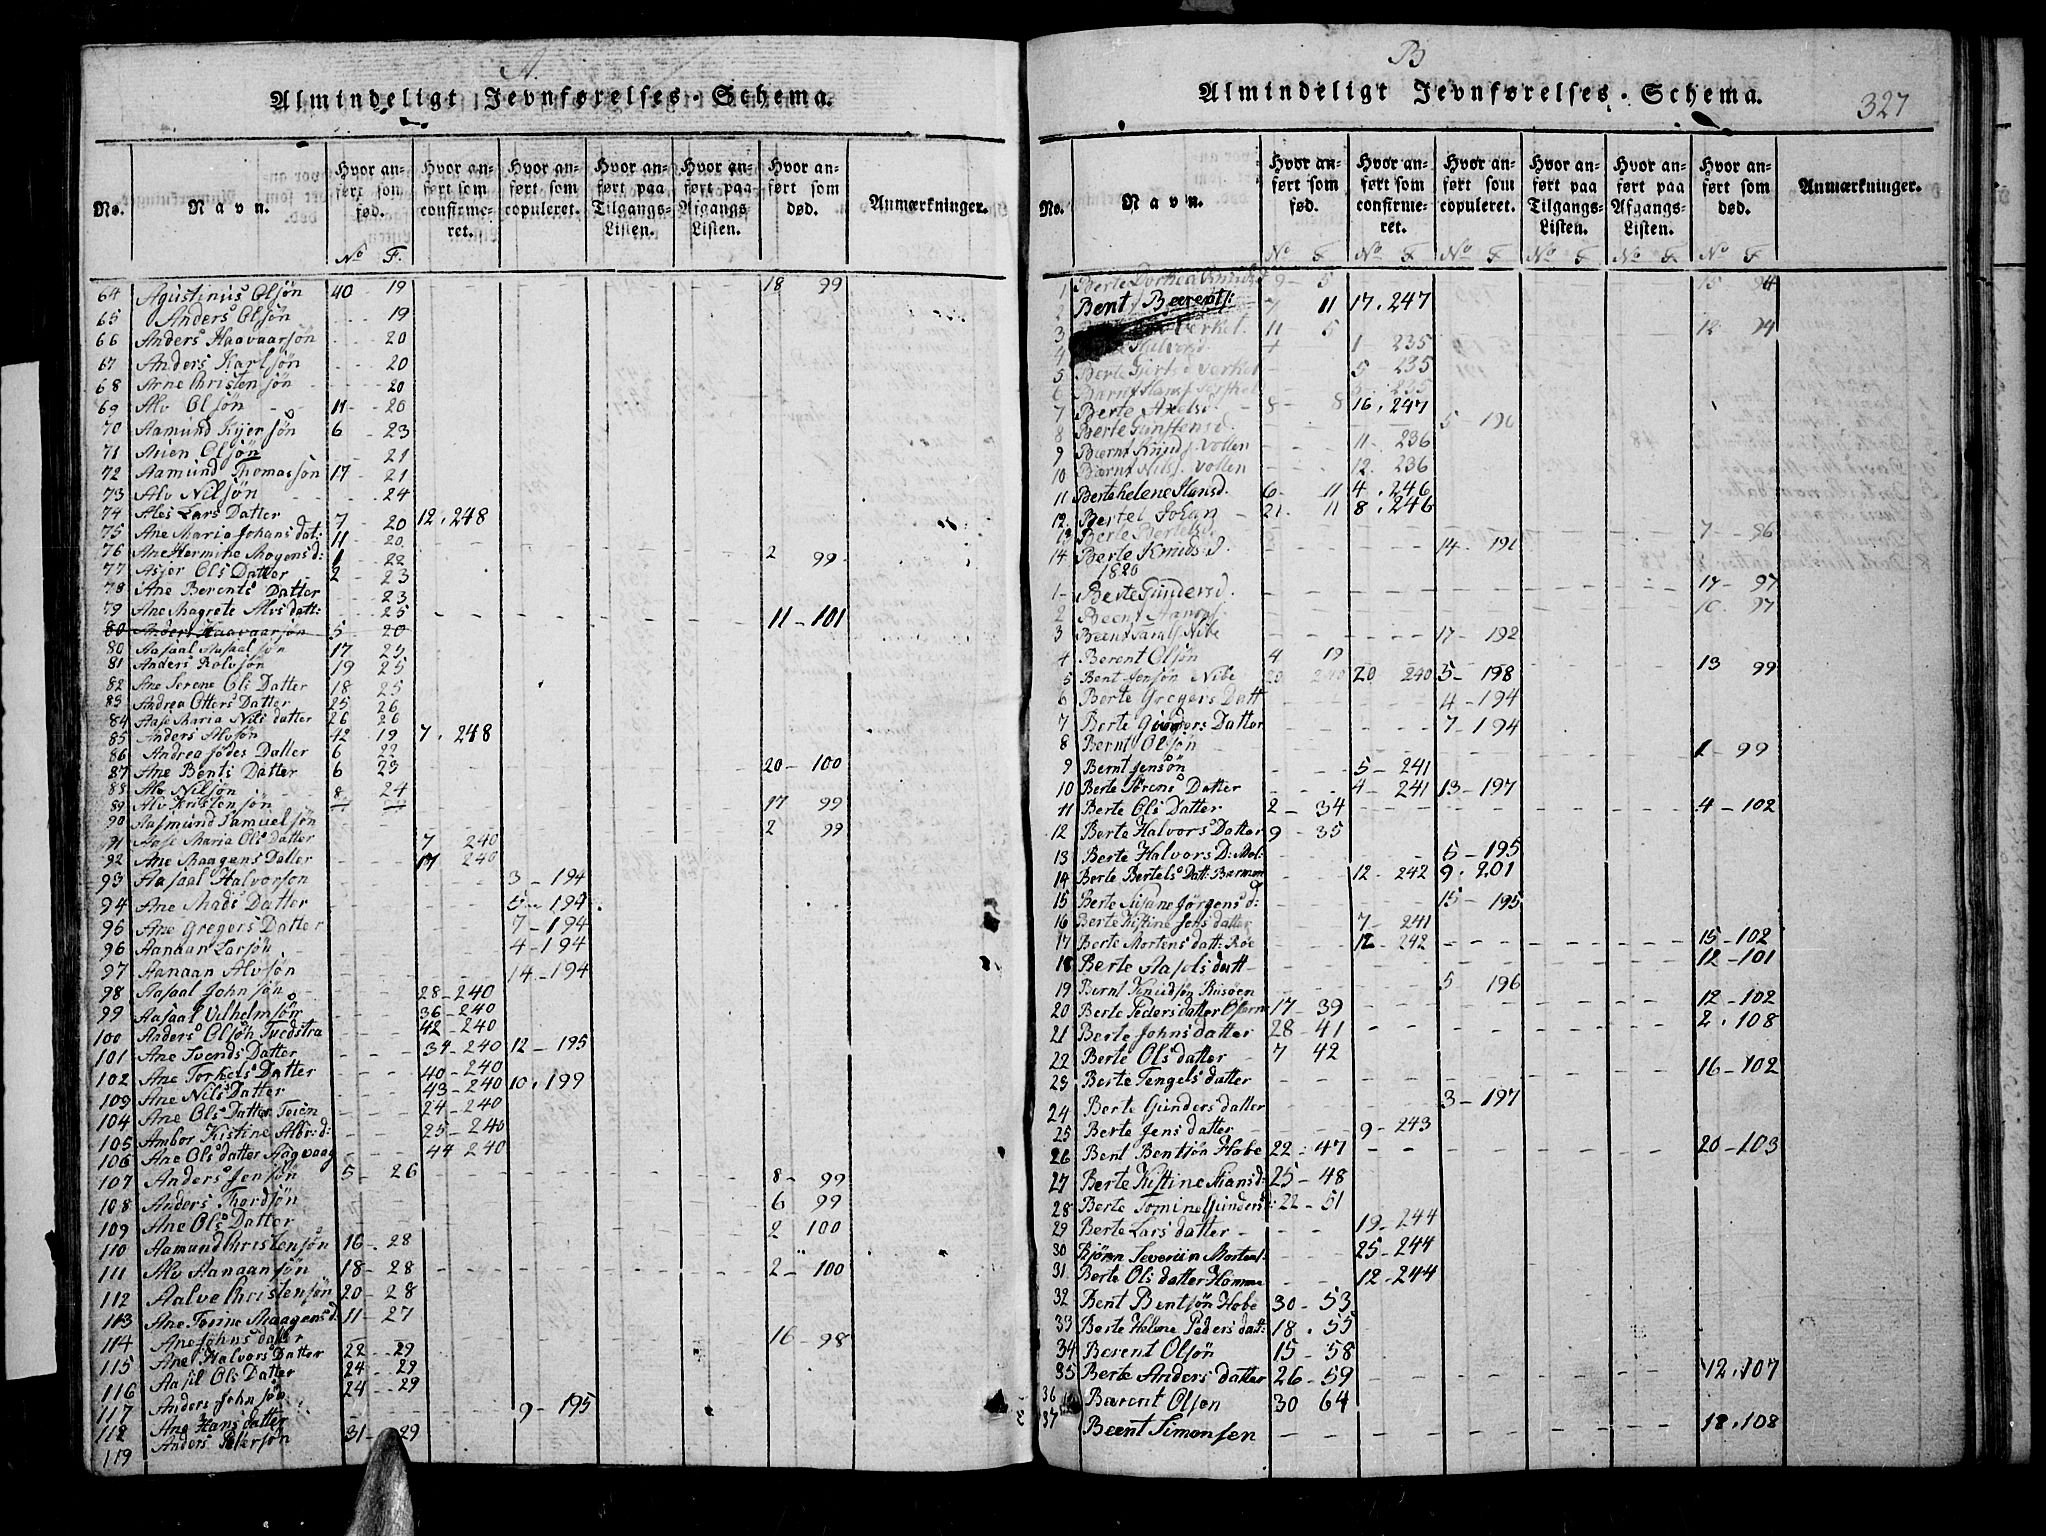 A.
Almindeligt Jevnførelses-Schema.
No. Navn. Hvor anført som fød. Hvor anført som confirmeret. Hvor anført som copuleret. Hvor anført paa Tilgangs-Listen. Hvor anført paa Afgangs Listen. Hvor anført som død. Anmærkninger.
No F.
64 Agustinius Olsøn 40 - 19 18 99
65 Anders Olsøn 19
66 Anders Haavaarsøn 20
67 Anders Karlsøn 20
68 Arne Christensøn 20
69 Alv Olsøn 11 - 20
70 Aamund Kjersøn 6 - 23
71 Olsøn 21
72 Aamund Thomassøn 17 - 21
73 Alv Nilsøn 24
74 Ales Lars Datter 7 - 20 12. 248
75 Ane Maria Johans dat: 11 - 20
76 Ane Hermine Mogens d: 1 - 22 2 99
77 Asjer Ols Datter 2 - 23
78 Ane Berents Datter 23
79 Ane Magrete Alvs datt: 25 11 - 101
80 Anders Haavaarsøn 5 - 20
80 Aasaal Aasaalsøn 17 25
81 Anders Rolvsøn 19 25
82 Ane Serene Ols Datter 18 25
83 Andrea Otters Datter 25 26
84 Aase Maria Nils datter 26 26
85 Anders Alvsøn 42 - 19 7. 248
86 Andrea Datter 6 22
87 Ane Bents Datter 6 23 20 - 100
88 Alv Nilsøn 8 24
89 Alv Kristensøn 17 99
90 Aasmund Samuelsøn 2 99
91 Aase Maria Ols Datter 7 240
92 Ane Maagens Datter 17 240
93 Aasaal Halvorson 3 - 194
94 Ane Mads Datter 5 - 194
95 Ane Gregers Datter 7 - 194
96 Aanaan Larsøn 4 - 194
97 Aanaan Alvsøn 14 - 194
98 Aasaal Johnsøn 28 - 240
99 Aasaal Vilhelmsøn 36 - 240
100 Anders Olsøn Tvedstra 42 - 240
101 Ane Svends Datter 34 - 240 12 - 195
102 Ane Torkels Datter 40 - 240
103 Ane Nils Datter 43 - 240 10. 199
104 Ane Ols Datter 24 - 240
105 Ambor Kistine 25 - 240
106 Ane Ols datter 44 240
107 Anders Jensøn 5 - 26 8 - 99
108 Anders Thordsøn 6 99
109 Ane Ols Datter 2 100
110 Aamund Christensøn 16 - 28
111 Alv Aanaansøn 18 - 28 2 - 100
112 Aalve Christensøn 20 - 28
113 Ane Tonne Maagens d: 11 - 27
114 Ane Johns datter 16 - 98
115 Ane Halvors Datter 22 - 29
116 Aasil Ols Datter 24 - 29
117 Anders Johnsøn 24 - 29
118 Ane Hans datter 9 - 195
119 Anders Petersøn 31 - 29
B
Almindeligt Jevnførelses-Schema.
327
No. Navn. Hvor anført som fød. Hvor anført som confirmeret. Hvor anført som copuleret. Hvor anført paa Tilgangs-Listen. Hvor anført paa Afgangs-Listen. Hvor anført som død. Anmærkninger.
No F No F No F No F No F No F
1 Berte Dorthea 9 - 5
2 Bent Beerents: 7 11 17. 247
3 11 - 5
4 Halversd. 1 235
5 Berte Gjertsd 5 - 235
6 3 - 235
7 Berte Axelsd. 8 - 8 16. 247
8 Berte Gunstensd. 5 - 190
9 Bærnt Knuds. Vollen 11 - 236
10 Bærnt Nils. Vollen 12. 236
11 Berte helene Hansd. 6 - 11 4. 246
12. Bertel Johan 21. 11 8. 246
13 Berte Bertelsd. 7 - 96
14 Berte Knudsd. 14 - 191
1820
1 - Berte Gundersd. 17 - 97
2 Beent 10. 97
3 Beent 17 - 192
4 Berent Olsøn 4 19 13 99
5 Bent Jensøn Nibe 20 240 20 240 5 - 198
6 Berte Gregers Datt 4 - 194
7 Berte Gunders Datter 7 - 194
8 Bernt Olsøn 1 - 99
9 Bernt Jensøn 5 - 241
10 Berte Sørens Datter 4 - 241 13 - 197
11 Berte Ols Datter 2 - 34 4 - 102
12 Berte Halvors Datter 9 - 35
13 Berte Halvors D: 5 - 195
14 Berte Bertels Datt: 12 - 242 9. 201
15 Berte Susane Jørgens d: 15 - 195
16 Berte Kistine Jens datter 7 - 241
17 Berte Mortens datt: Roe 12 - 242 15 - 102
18 Berte Aasols datt 12 - 101
19 Bernt Knudsøn Risøen 5 196
20 Berte Peders datter 17 - 39 12 - 102
21 Berte Johns datter 28 - 41 2. 108
22 Berte Ols datter 7 42
23 Berte Tengels datter 16 - 102
24 Berte Gunders datter 3 - 197
25 Berte Jens datter 9 - 243
26 Bent Bentsøn Hobe 22 - 47 20 - 103
27 Berte Kistine Hansd: 25 - 48
28 Berte Tomine Gunders d: 22 - 51
29 Berte Lars datter 19 - 244
30 Bjørn Severiin Mortens. 25 - 244
31. Berte Ols datter 12 - 244
32 Bent Bentsøn Hobe 30 - 53
33 Berte Helene Peders datt: 18. 55
34 Berent Olsøn 15 - 58
35 Berte Anders datter 26 - 59 12. 107
36 Bærent Olsøn 30 64
37 Beent Simonsen 18. 108